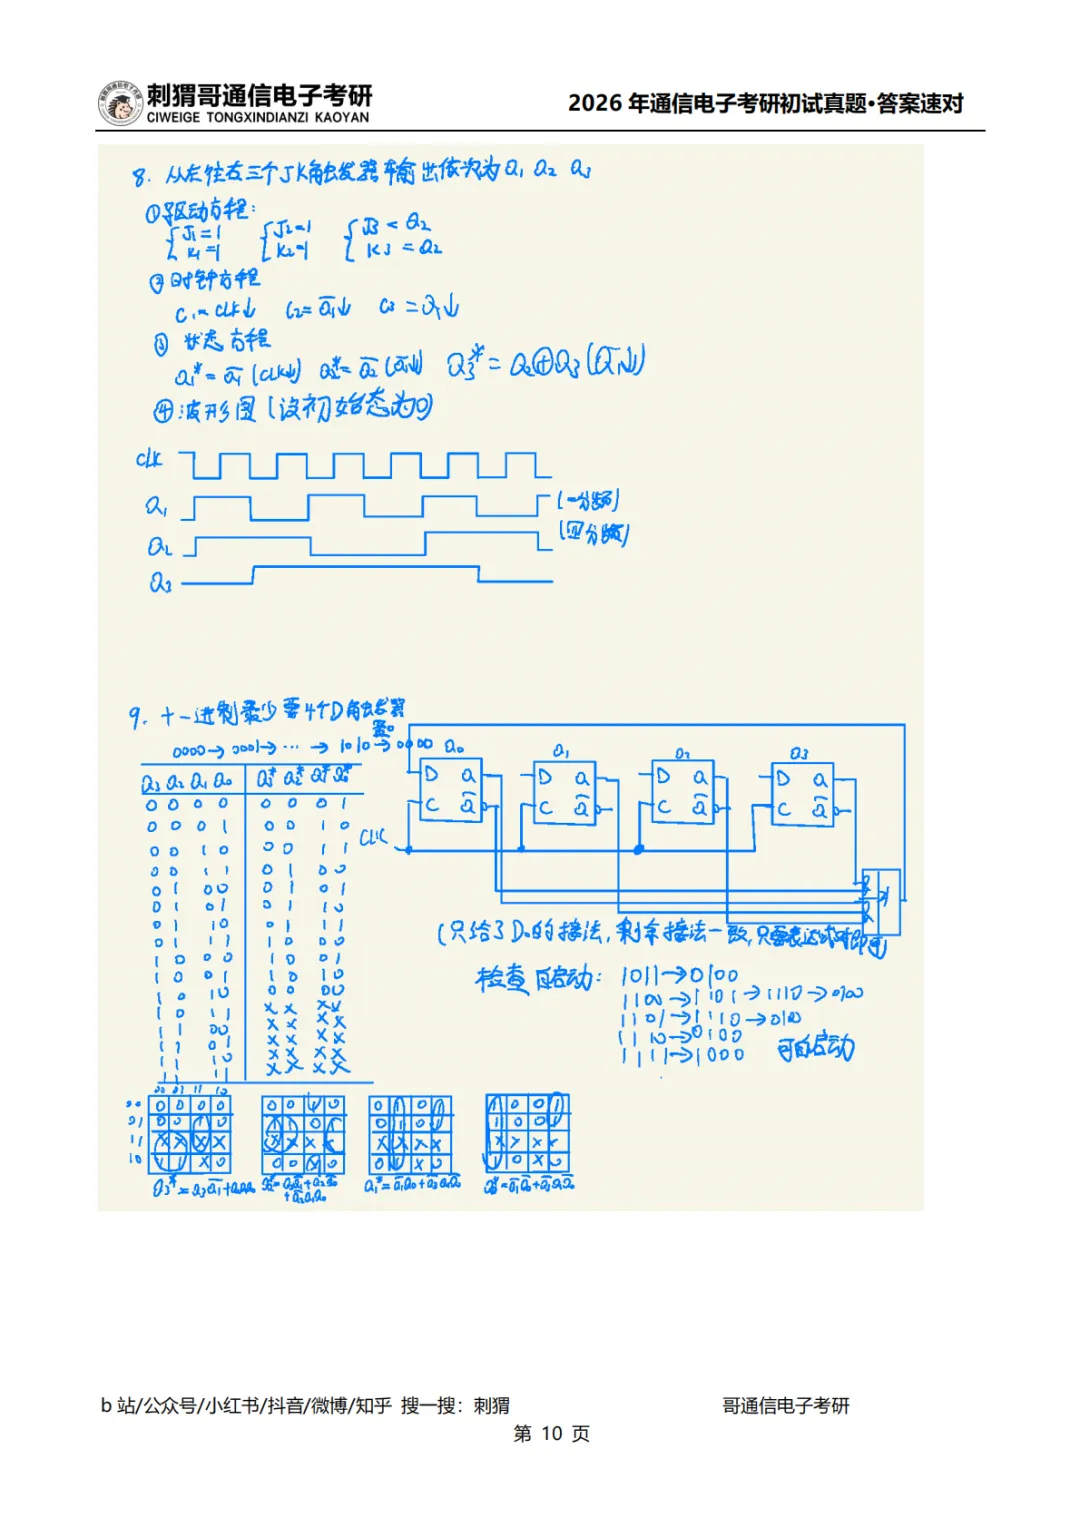 刺猬哥通信电子考研
CIWEIGE TONGXINDIANZI KAOYAN
2026 年通信电子考研初试真题·答案速对
8. 从左往右三个JK触发器输出依次为Q₁ Q₂ Q₃
①驱动方程:
{J₁=1 {J₂=1 {J₃=Q₂
K₁=1 K₂=1 K₃=Q₂
②时钟方程
C₁=CLK↓ C₂=Q̅₁↓ C₃=Q₁↓
③ 状态方程
Q₁*=Q̅₁(CLK↓) Q₂*=Q̅₂(Q̅₁↓) Q₃*=Q₂⊕Q₃(Q₁↓)
④:波形图(设初始态为0)
CLK
Q₁ (二分频)
Q₂ (四分频)
Q₃
9. 十一进制最少要4个D触发器
置0
0000→0001→…→1010→0000
Q₃ Q₂ Q₁ Q₀ Q₃* Q₂* Q₁* Q₀*
0 0 0 0 0 0 0 1
0 0 0 1 0 0 1 0
0 0 1 0 0 0 1 1
0 0 1 1 0 1 0 0
0 1 0 0 0 1 0 1
0 1 0 1 0 1 1 0
0 1 1 0 0 1 1 1
0 1 1 1 1 0 0 0
1 0 0 0 1 0 0 1
1 0 0 1 1 0 1 0
1 0 1 0 0 0 0 0
1 0 1 1 X X X X
1 1 0 0 X X X X
1 1 0 1 X X X X
1 1 1 0 X X X X
1 1 1 1 X X X X
Q₀ Q₁ Q₂ Q₃
D Q D Q D Q D Q
C Q̅ C Q̅ C Q̅ C Q̅
CLK
& ≥1
&
(只给了D₀的接法,剩余接法一致,只要表达式对即可)
检查自启动: 1011→0100
1100→1101→1110→0100
1101→1110→0100
1110→0100
1111→1000 可自启动
00 01 11 10
00 0 0 0 0
01 0 0 1 0
11 X X X X
10 1 1 X 0
0 0 1 0
1 1 0 1
X X X X
0 0 X 0
0 1 0 1
0 1 0 1
X X X X
0 1 X 0
1 0 0 1
1 0 0 1
X X X X
1 0 X 0
b 站/公众号/小红书/抖音/微博/知乎 搜一搜：刺猬
哥通信电子考研
第 10 页